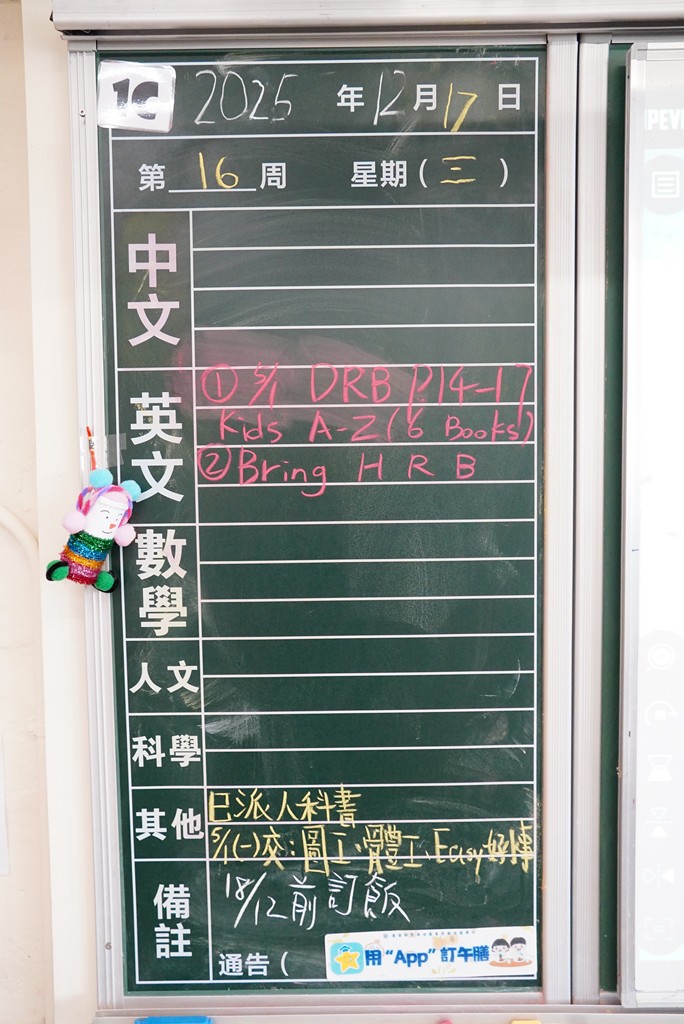 1C 2025 年 12 月 17 日
第 16 周 星期 ( 三 )
中文
英文
① 5/1 DRB P.14-17
Kids A-Z (6 Books)
② Bring H R B
數學
人文
科學
其他
已派人科書
5/1(一)交:圖工、體工、Easy好傳
備註
18/12前訂飯
通告 (
用 "App" 訂午膳